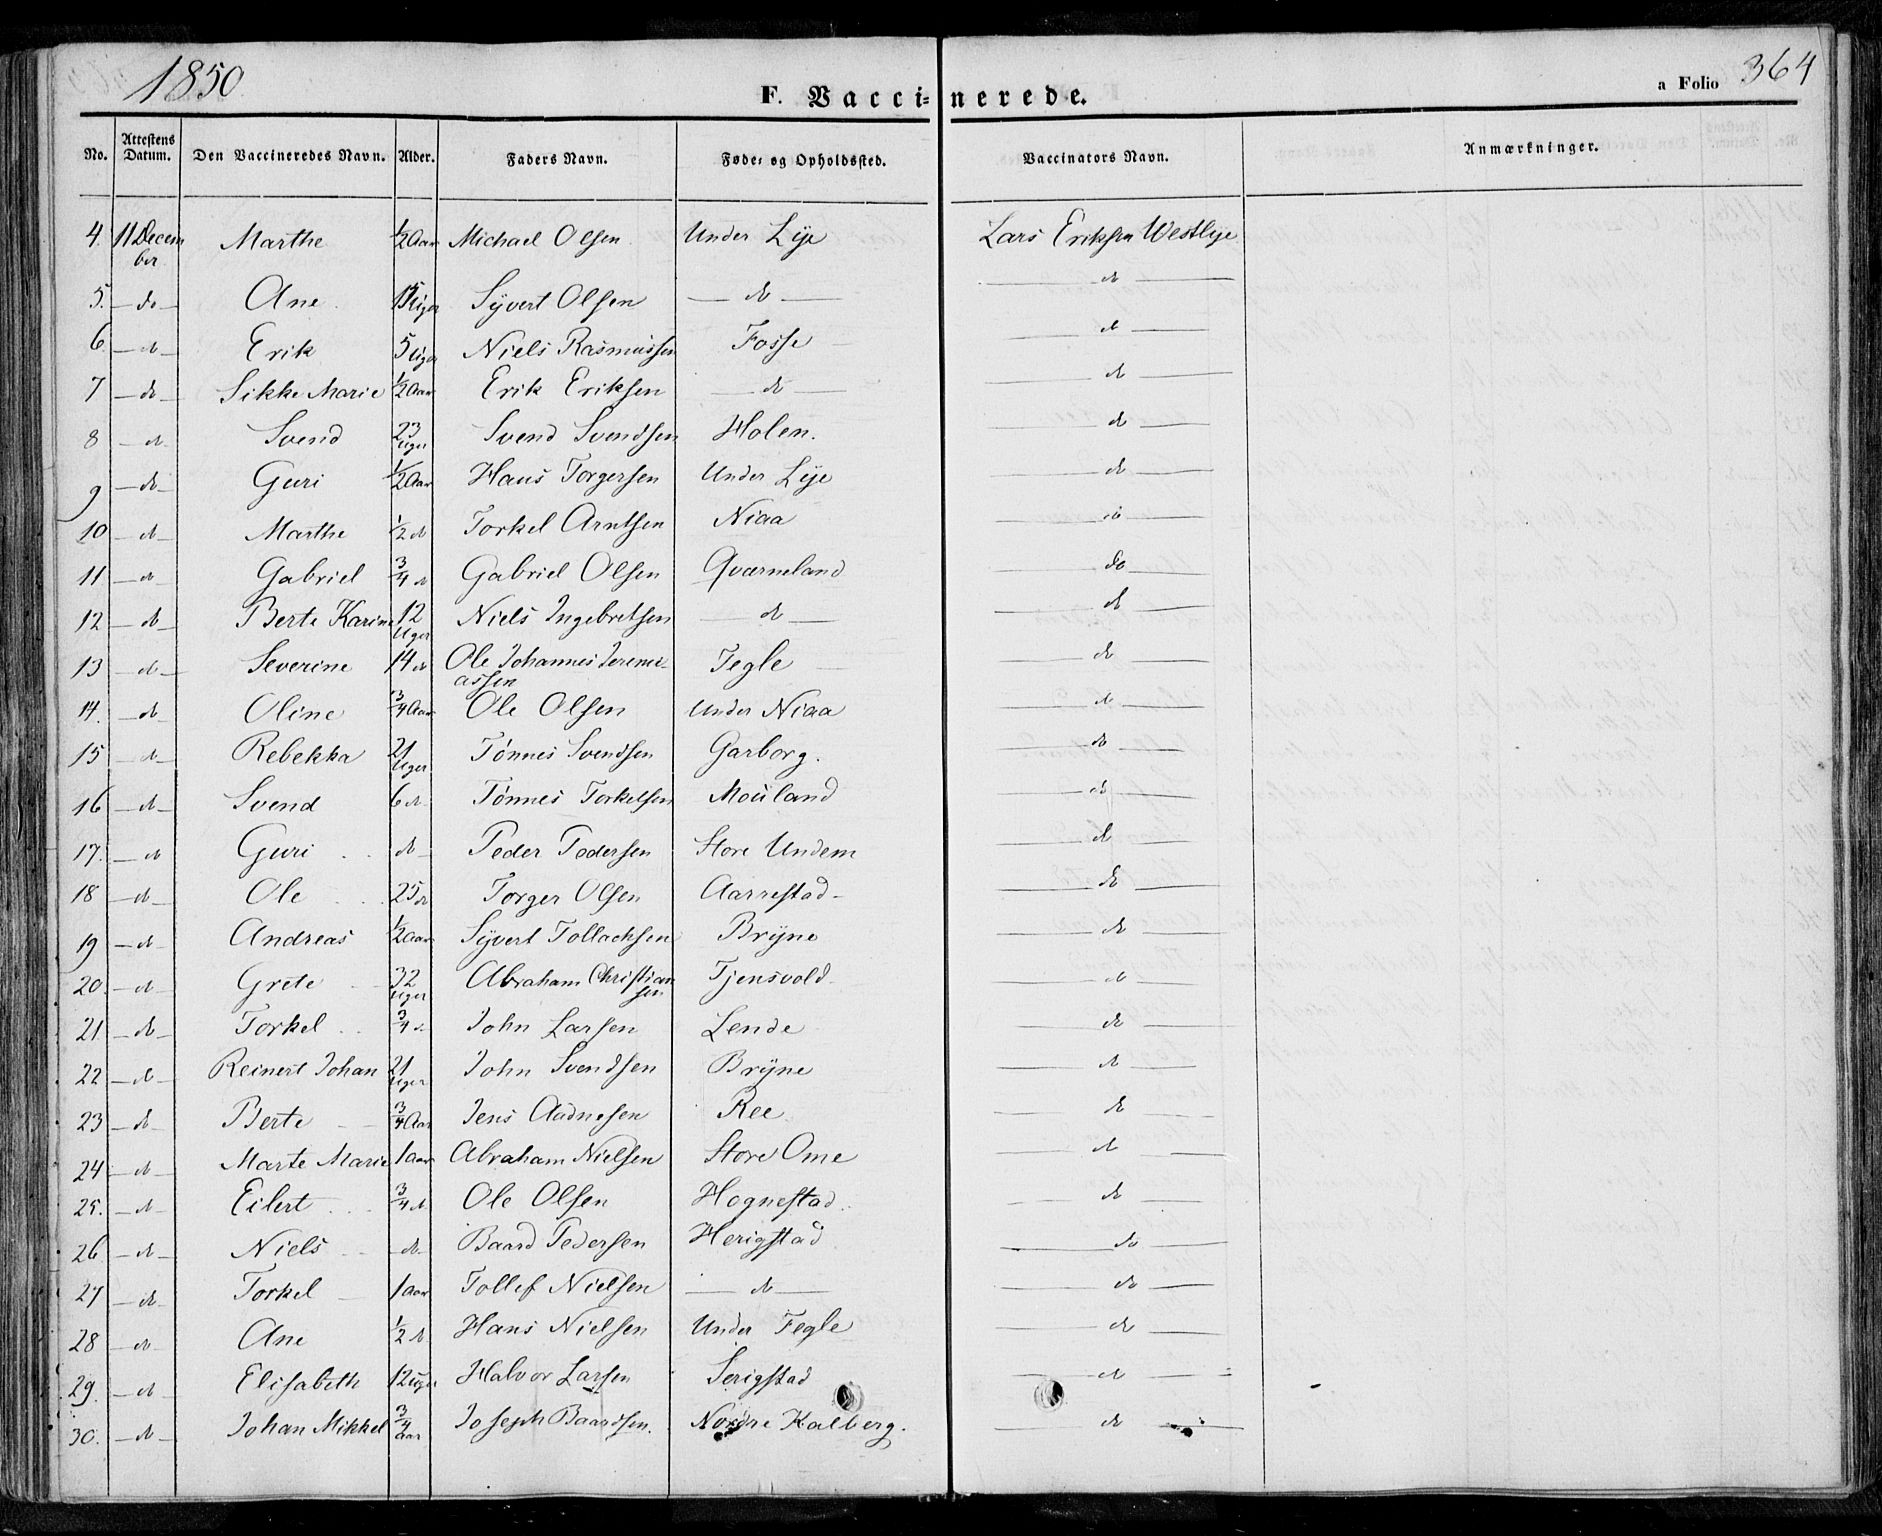 1850
F. Vaccinerede.
a Folio 364
No. Attestens Datum. Den Vaccineredes Navn. Alder. Faders Navn. Føde- og Opholdssted. Vaccinators Navn. Anmærkninger.
4. 11 December Marthe ½ Aar Michael Olsen Under Lye Lars Eriksen Westlye
5. do Ane 15 Uger Syvert Olsen do do
6. do Erik 5 Uger Niels Rasmussen Fosse do
7 do Sikke Marie ½ Aar Erik Eriksen do do
8 do Svend 23 Uger Svend Svendsen Holen. do
9 do Guri ½ Aar Hans Torgersen Under Lye do
10 do Marthe ½ do Torkel Arntsen Niaa do
11 do Gabriel ¾ do Gabriel Olsen Qværneland do
12 do Berte Karine 12 Uger Niels Ingebretsen do do
13 do Severine 14 do Ole Johannes Jeremiassen Tegle do
14. do Oline ¾ Aar Ole Olsen Under Niaa do
15 do Rebekka 21 Uger Tønnes Svendsen Garborg. do
16 do Svend 6 do Tønnes Torkelsen Mouland do
17. do Guri do Peder Pedersen Store Undem do
18 do Ole 25 do Torger Olsen Aarrestad do
19 do Andreas ½ Aar Syvert Tollachsen Bryne do
20. do Grete 32 Uger Abraham Christiansen Tjensvold do
21. do Torkel ¾ do John Larsen Lende do
22 do Reinert Johan 21 Uger John Svendsen Bryne do
23 do Berte ¾ Aar Jens Aadnesen Ree do
24 do Marte Marie 1 aar Abraham Nielsen Store Ome do
25. do Eilert ¾ do Ole Olsen Hognestad do
26 do Niels do Baard Pedersen Herigstad do
27 do Torkel 1 aar Tollef Nielsen do do
28 do Ane ½ do Hans Nielsen Under Tegle do
29. do Elisabeth 12 Uger Halvor Larsen Serigstad do
30. do Johan Mikkel ¾ aar Joseph Baardsen. Nordre Kalberg. do